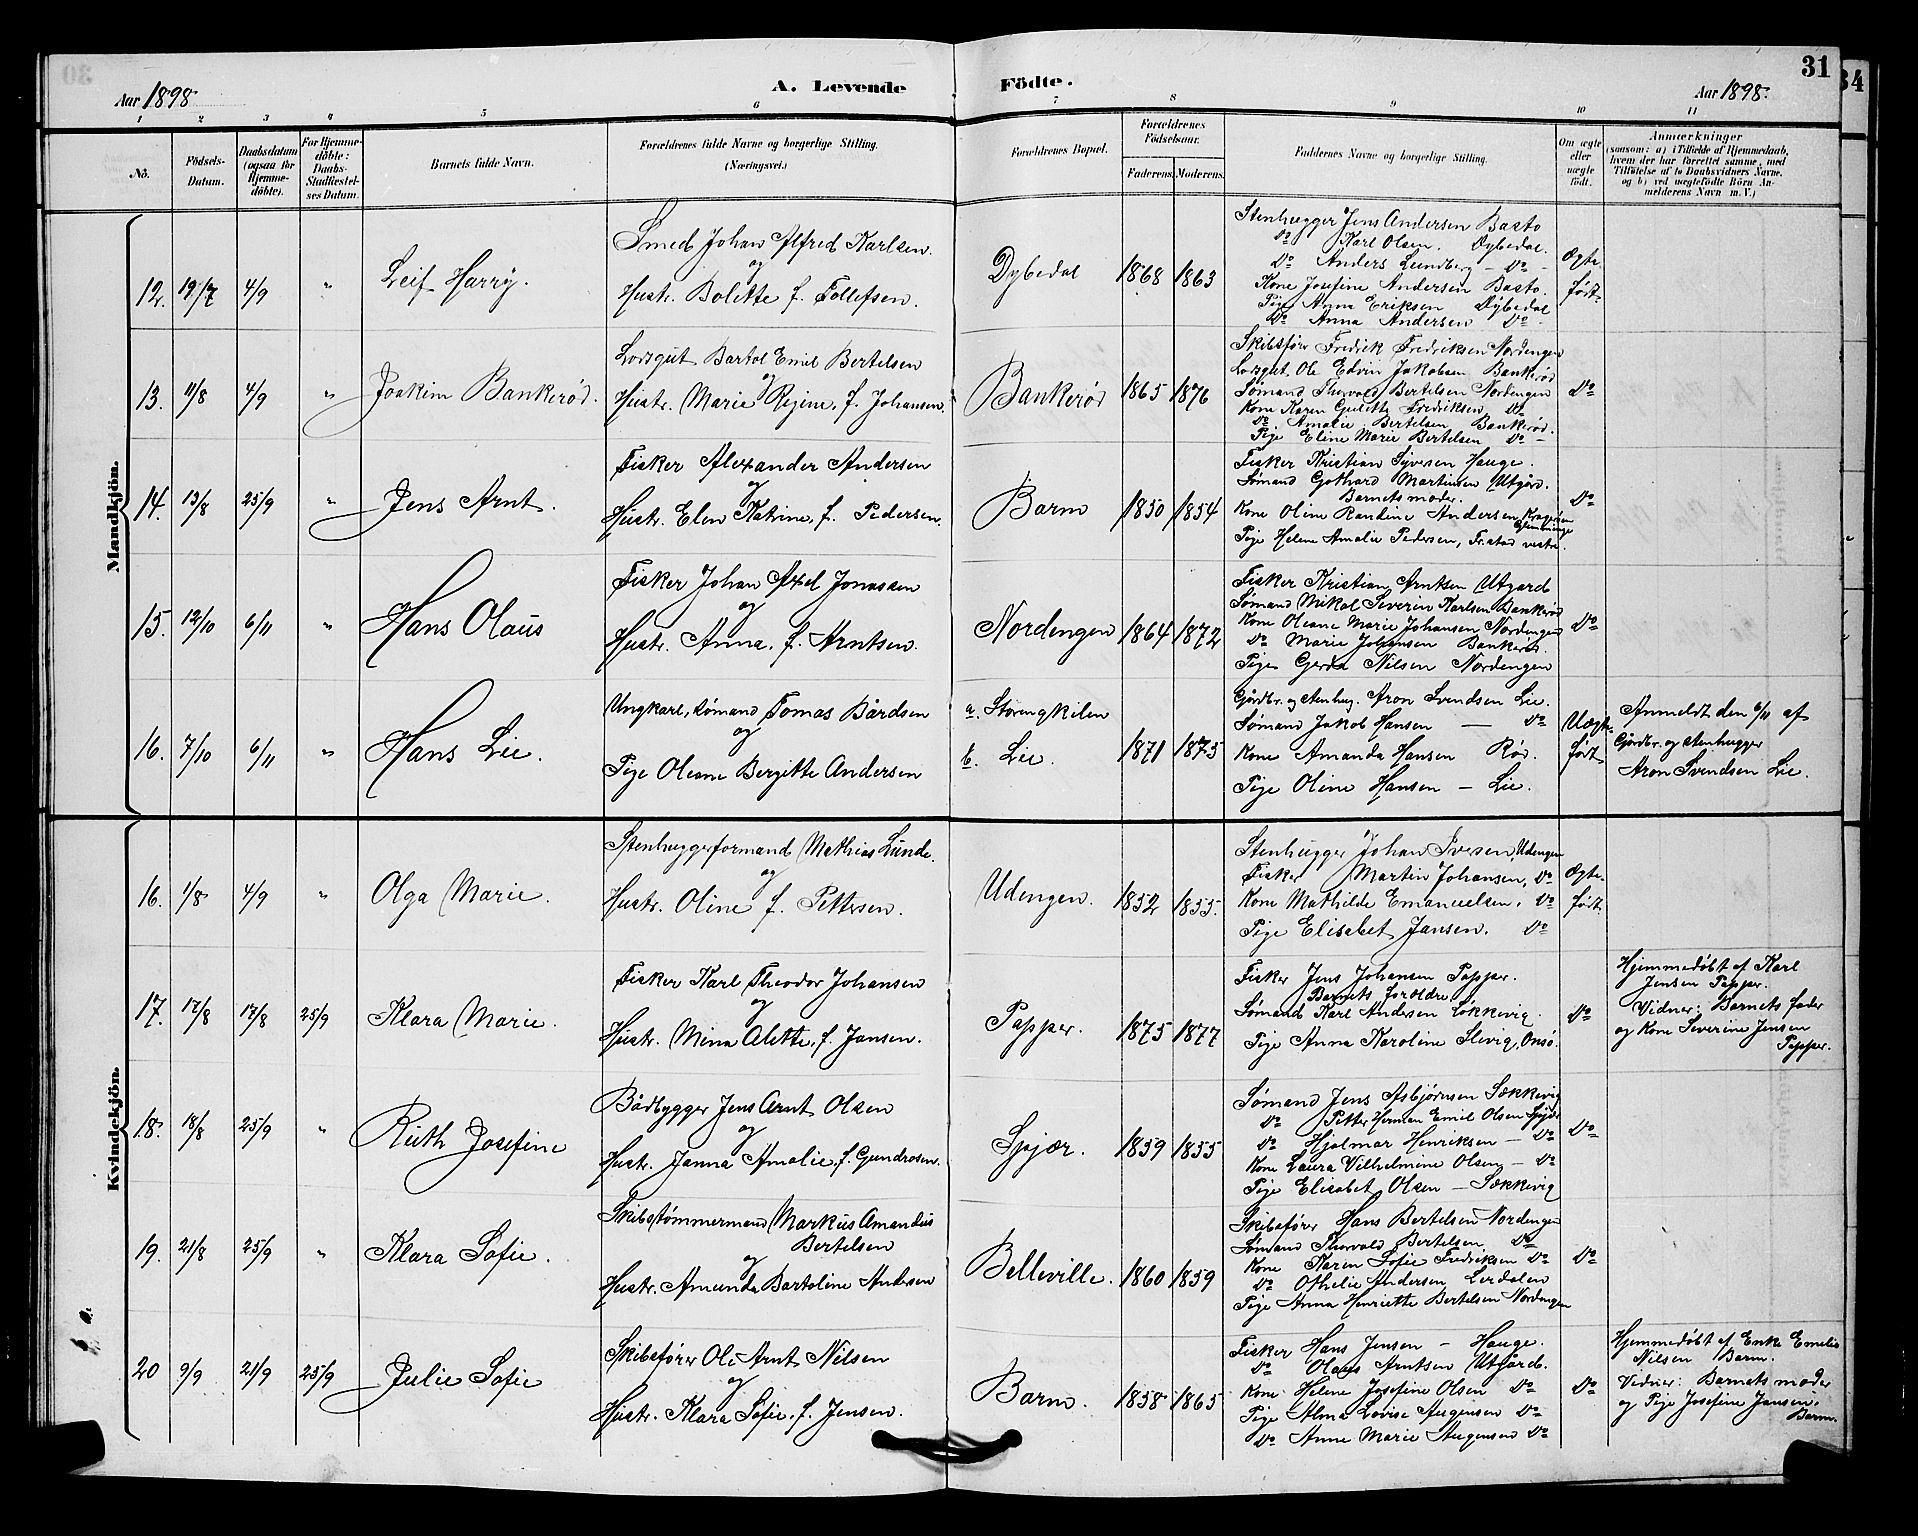 30
31
34
Aar 1898.
A. Levende
Födte.
Aar 1898.
1
2
3
4
5
6
7
8
9
10
11
No.
Födsels-
Datum.
Daabsdatum
(ogsaa for
Hjemme-
döbte).
For Hjemme-
döbte:
Daabs-
Stadfæstel-
ses Datum.
Barnets fulde Navn.
Forældrenes fulde Navne og borgerlige Stilling.
(Næringsvei.)
Forældrenes Bopæl.
Forældrenes
Födselsaar.
Faderens.
Moderens.
Faddernes Navne og borgerlige Stilling.
Om ægte
eller
uægte
födt.
Anmærkninger
(saasom: a) i Tilfælde af Hjemmedaab,
hvem der har forrettet samme, med
Tilföielse af to Daabsvidners Navne,
og b) ved uægtefödte Börn An-
melderens Navn m. V.)
Mandkjön.
12. 19/7 4/9 " Leif Harry.
Smed Johan Alfred Karlsen.
og
Hustr. Bolette f. Tollefsen.
Dybedal 1868 1863
Stenhugger Jens Andersen Basto
Do Karl Olsen. Dybedal.
Do Anders Lundberg – Do –
Kone Josefine Andersen Basto.
Pige Anna Eriksen Dybedal
Do Anna Andersen Do –
Ægte-
født
13. 11/8 4/9 " Joakim Bankerød.
Lodsgut Bartol Emil Bertelsen
og
Hustr. Marie Regine, f. Johansen.
Bankerød 1865 1876
Skibsfører Fredrik Fredriksen Nordengen
Lodsgut Ole Edvin Jakobsen Bankerød
Sømand Thorvald Bertelsen Nordengen
Kone Karen Gulette Fredriksen Do
Do Amalie Bertelsen Bankerød.
Pige Eline Marie Bertelsen Do –
Do
14. 13/8 25/9 " Jens Arnt.
Fisker Alexander Andersen
og
Hustr. Elen Katrine, f. Pedersen.
Barm 1850 1854
Fisker Kristian Syversen Hauge.
Sømand Gothard Martinsen Utgård.
Barnets moder.
Kone Oline Randine Andersen, Kragerøen
Pige Helene Amalie Pedersen, Fr.stad vestre.
Do
15. 12/10 6/11 " Hans Olaüs
Fisker Johan Axel Jonassen
og
Hustr. Anna, f. Arntsen.
Nordengen 1864 1872
Fisker Kristian Arntsen Utgard
Sømand Mikal Severin Karlsen Bankerød
Kone Oleane Marie Johansen Nordengen
Do Marie Johansen Bankerød.
Pige Gerda Nilsen Nordengen
Do
16. 7/10 6/11 " Hans Lie.
Ungkarl, sømand Tomas Bårdsen
og
Pige Oleane Bergitte Andersen
a. Storengkilen
b. Lie. 1871 1875
Gårdbr. og stenhug. Aron Svendsen Lie.
Sømand Jakob Hansen – Do
Kone Amanda Hansen Rød.
Pige Oline Hansen – Lie.
Uægte-
født
Anmeldt den 6/11 af
Gårdbr. og stenhugger
Aron Svendsen Lie.
Kvindekjön.
16. 1/8 4/9 " Olga Marie.
Stenhuggerformand Mathias Lunde.
og
Hustr. Oline f. Pettersen.
Udengen. 1852 1855.
Stenhugger Johan Iversen, Udengen
Fisker Martin Johansen, Do
Kone Mathilde Emanuelsen, Do
Pige Elisabet Jansen. Do
Ægte-
født
17. 17/8 17/8 25/9 Klara Marie.
Fisker Karl Theodor Johansen
og
Hustr. Mina Alette, f. Jansen.
Papper. 1875 1877
Fisker Jens Johansen Papper.
Barnets forældre
Sømand Karl Andersen Løkkevig.
Pige Anna Karoline Slevig, Onsø.
Do
Hjemmedøbt af Karl
Jensen Papper.
Vidner: Barnets fader
og Kone Severine Jensen
Papper.
18. 18/8 25/9 " Ruth Josefine
Bådbygger Jens Arnt Olsen
og
Hustr. Janna Amalie, f. Gundrosen.
Spjær. 1859 1855
Sømand Jens Asbjørnsen Sækkevig
Do Petter Herman Emil Olsen Spjær
Do Hjalmar Henriksen – Do
Kone Laura Vilhelmine Olsen – Do
Pige Elisabet Olsen – Sækkevig
Do
19. 21/8 25/9 " Klara Sofie.
Skibstømmermand Markus Amandus
Bertelsen
og
Hustr. Amunda Bartoline Andersen
Belleville. 1860 1859
Skibsfører Hans Bertelsen Nordengen
Sømand Thorvald Bertelsen Do
Kone Karen Sofie Fredriksen Do
Do Othelie Andersen Lerdalen
Pige Anna Henriette Bertelsen Nordengen
Do
20 9/9 21/9 25/9 Julie Sofie
Skibsfører Ole Arnt Nilsen
og
Hustr. Klara Sofie, f. Jensen.
Barm. 1858 1865
Fisker Hans Jensen – Hauge.
Do Olaus Arntsen Utgård.
Kone Helene Josefine Olsen Do
Pige Alma Lovise Augensen Do
Do Anne Marie Augensen Do
Do
Hjemmedøbt af Enke Emelie
Nilsen Barm.
Vidner: Barnets moder
og Pige Josefine Jansen.
Barm.